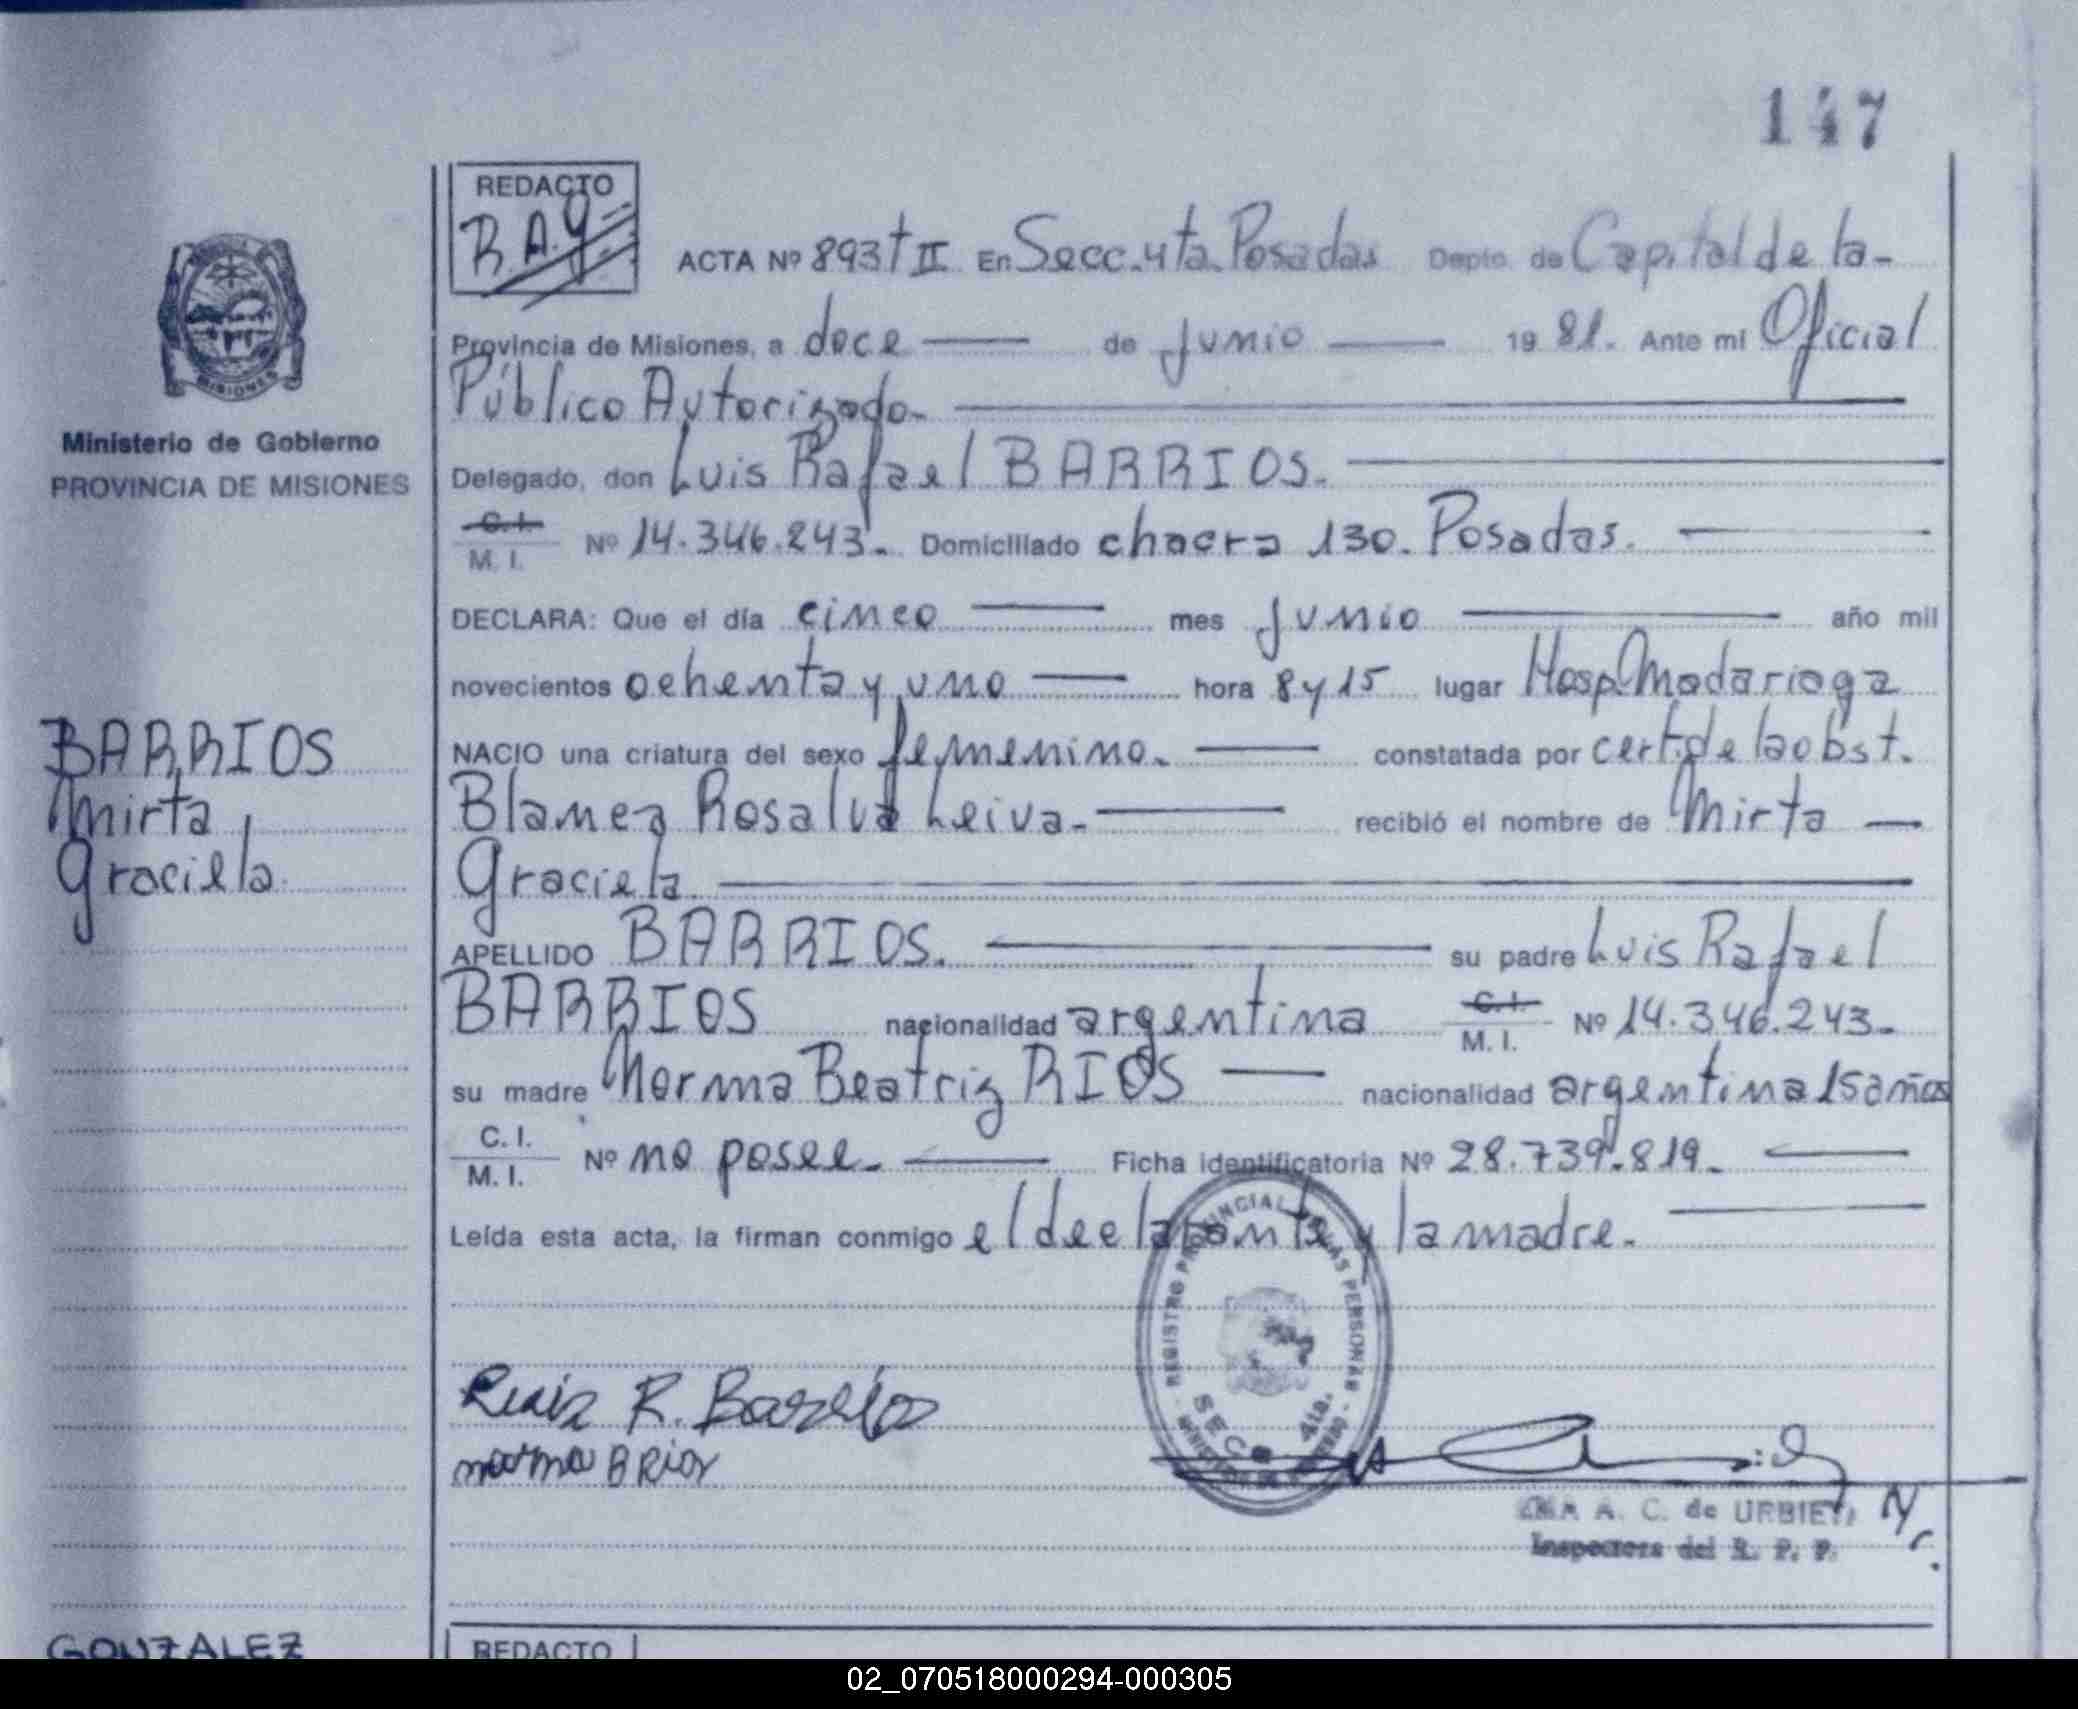 147
REDACTO
B.A.G
ACTA Nº 893 t II En Secc. 4ta. Posadas Depto. de Capital de la-
Provincia de Misiones, a doce de Junio 19 81. Ante mi Oficial
Público Autorizado.
Delegado, don Luis Rafael BARRIOS.
C.I. M.I. Nº 14.346.243. Domiciliado chacra 130. Posadas.
DECLARA: Que el día cinco mes Junio año mil
novecientos ochenta y uno hora 8 y 15 lugar Hosp. Madariaga
NACIO una criatura del sexo femenino. constatada por cert. de la obst.
Blanca Rosalva Leiva. recibió el nombre de Mirta
Graciela.
APELLIDO BARRIOS. su padre Luis Rafael
BARRIOS nacionalidad argentina C.I. M.I. Nº 14.346.243.
su madre Norma Beatriz RIOS nacionalidad argentina 15 años
C.I. M.I. Nº no posee. Ficha identificatoria Nº 28.739.819.
Leída esta acta, la firman conmigo el declarante y la madre.
Luis R. Barrios
norma B Rios
REGISTRO PROVINCIAL DE LAS PERSONAS
SECC. 4ta.
A. C. de URBIETA
Inspectora del R. P. P.
Ministerio de Gobierno
PROVINCIA DE MISIONES
BARRIOS
Mirta
Graciela.
MISIONES
GONZALEZ
REDACTO
02_070518000294-000305